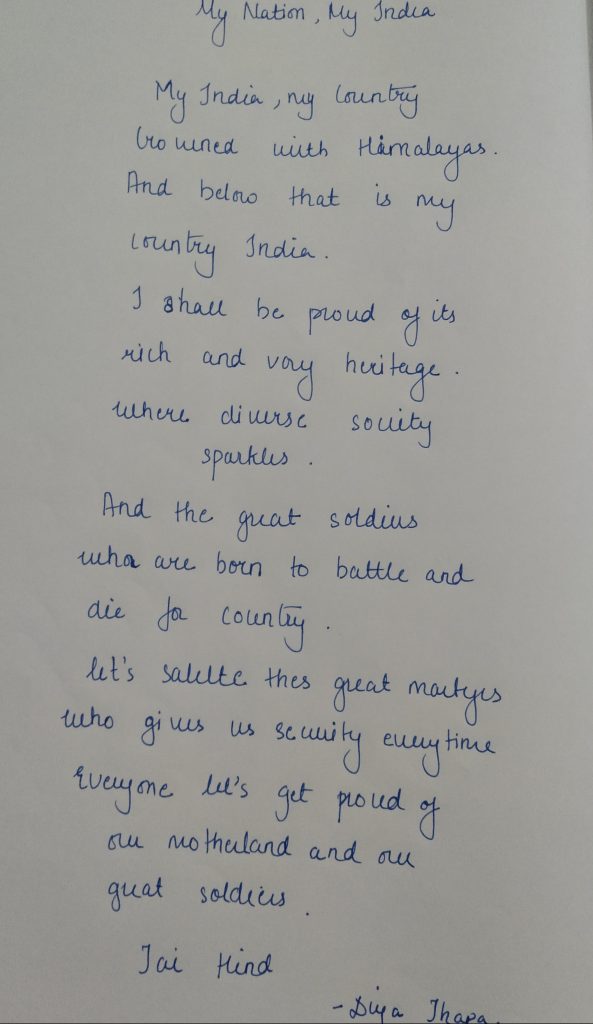 My Nation, My India
My India, my country
Crowned with Himalayas.
And below that is my
country India.
I shall be proud of its
rich and vary heritage.
where diverse society
sparkles.
And the great soldiers
who are born to battle and
die for country.
let's salute thes great martyrs
who gives us security everytime
Everyone let's get proud of
our motherland and our
great soldiers.
Jai Hind
- Diya Thapa.